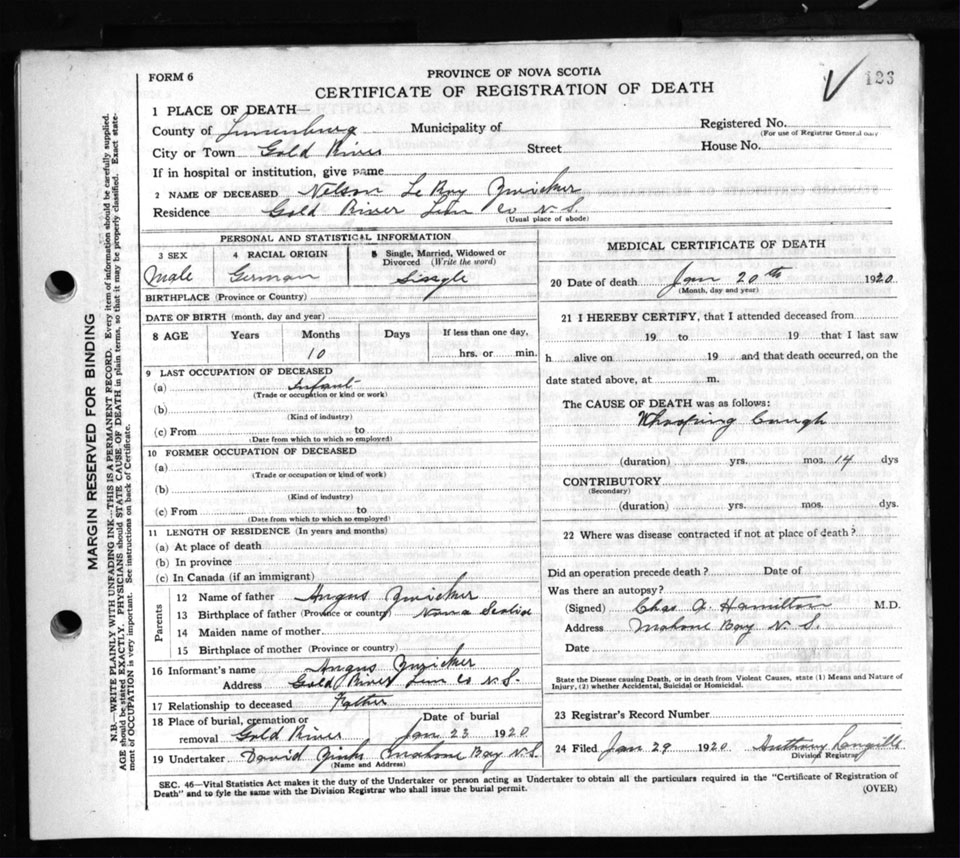 FORM 6
PROVINCE OF NOVA SCOTIA
CERTIFICATE OF REGISTRATION OF DEATH
1 PLACE OF DEATH—
County of Lunenburg Municipality of Registered No.
(For use of Registrar General only)
City or Town Gold River Street House No.
If in hospital or institution, give name
2 NAME OF DECEASED Nelson Le Roy Zwicker
Residence Gold River Lun Co N.S.
(Usual place of abode)
PERSONAL AND STATISTICAL INFORMATION
3 SEX 4 RACIAL ORIGIN 5 Single, Married, Widowed or Divorced (Write the word)
Male German Single
BIRTHPLACE (Province or Country)
DATE OF BIRTH (month, day and year)
8 AGE Years Months Days If less than one day,
10 hrs. or min.
9 LAST OCCUPATION OF DECEASED
(a) Infant
(Trade or occupation or kind or work)
(b)
(Kind of industry)
(c) From to
(Date from which to which so employed)
10 FORMER OCCUPATION OF DECEASED
(a)
(Trade or occupation or kind of work)
(b)
(Kind of industry)
(c) From to
(Date from which to which so employed)
11 LENGTH OF RESIDENCE (In years and months)
(a) At place of death
(b) In province
(c) In Canada (if an immigrant)
Parents
12 Name of father Angus Zwicker
13 Birthplace of father (Province or country) Nova Scotia
14 Maiden name of mother
15 Birthplace of mother (Province or country)
16 Informant's name Angus Zwicker
Address Gold River Lun Co N.S.
17 Relationship to deceased Father
18 Place of burial, cremation or removal Gold River Date of burial Jan 23 1920
19 Undertaker David Zinks Mahone Bay N.S.
(Name and Address)
MEDICAL CERTIFICATE OF DEATH
20 Date of death Jan 20th 1920
(Month, day and year)
21 I HEREBY CERTIFY, that I attended deceased from
19 to 19 that I last saw
h alive on 19 and that death occurred, on the
date stated above, at m.
The CAUSE OF DEATH was as follows:
Whooping Cough
(duration) yrs. mos. 14 dys
CONTRIBUTORY
(Secondary)
(duration) yrs. mos. dys.
22 Where was disease contracted if not at place of death?
Did an operation precede death? Date of
Was there an autopsy?
(Signed) Chas A. Hamilton M.D.
Address Mahone Bay N.S.
Date
State the Disease causing Death, or in death from Violent Causes, state (1) Means and Nature of
Injury, (2) whether Accidental, Suicidal or Homicidal.
23 Registrar's Record Number
24 Filed Jan 29 1920 Anthony Langille
Division Registrar
SEC. 46—Vital Statistics Act makes it the duty of the Undertaker or person acting as Undertaker to obtain all the particulars required in the "Certificate of Registration of
Death" and to fyle the same with the Division Registrar who shall issue the burial permit.
(OVER)
MARGIN RESERVED FOR BINDING
N.B.—WRITE PLAINLY WITH UNFADING INK—THIS IS A PERMANENT RECORD. Every item of information should be carefully supplied.
AGE should be stated EXACTLY. PHYSICIANS should STATE CAUSE OF DEATH in plain terms, so that it may be properly classified. Exact state-
ment of OCCUPATION is very important. See instructions on back of Certificate.